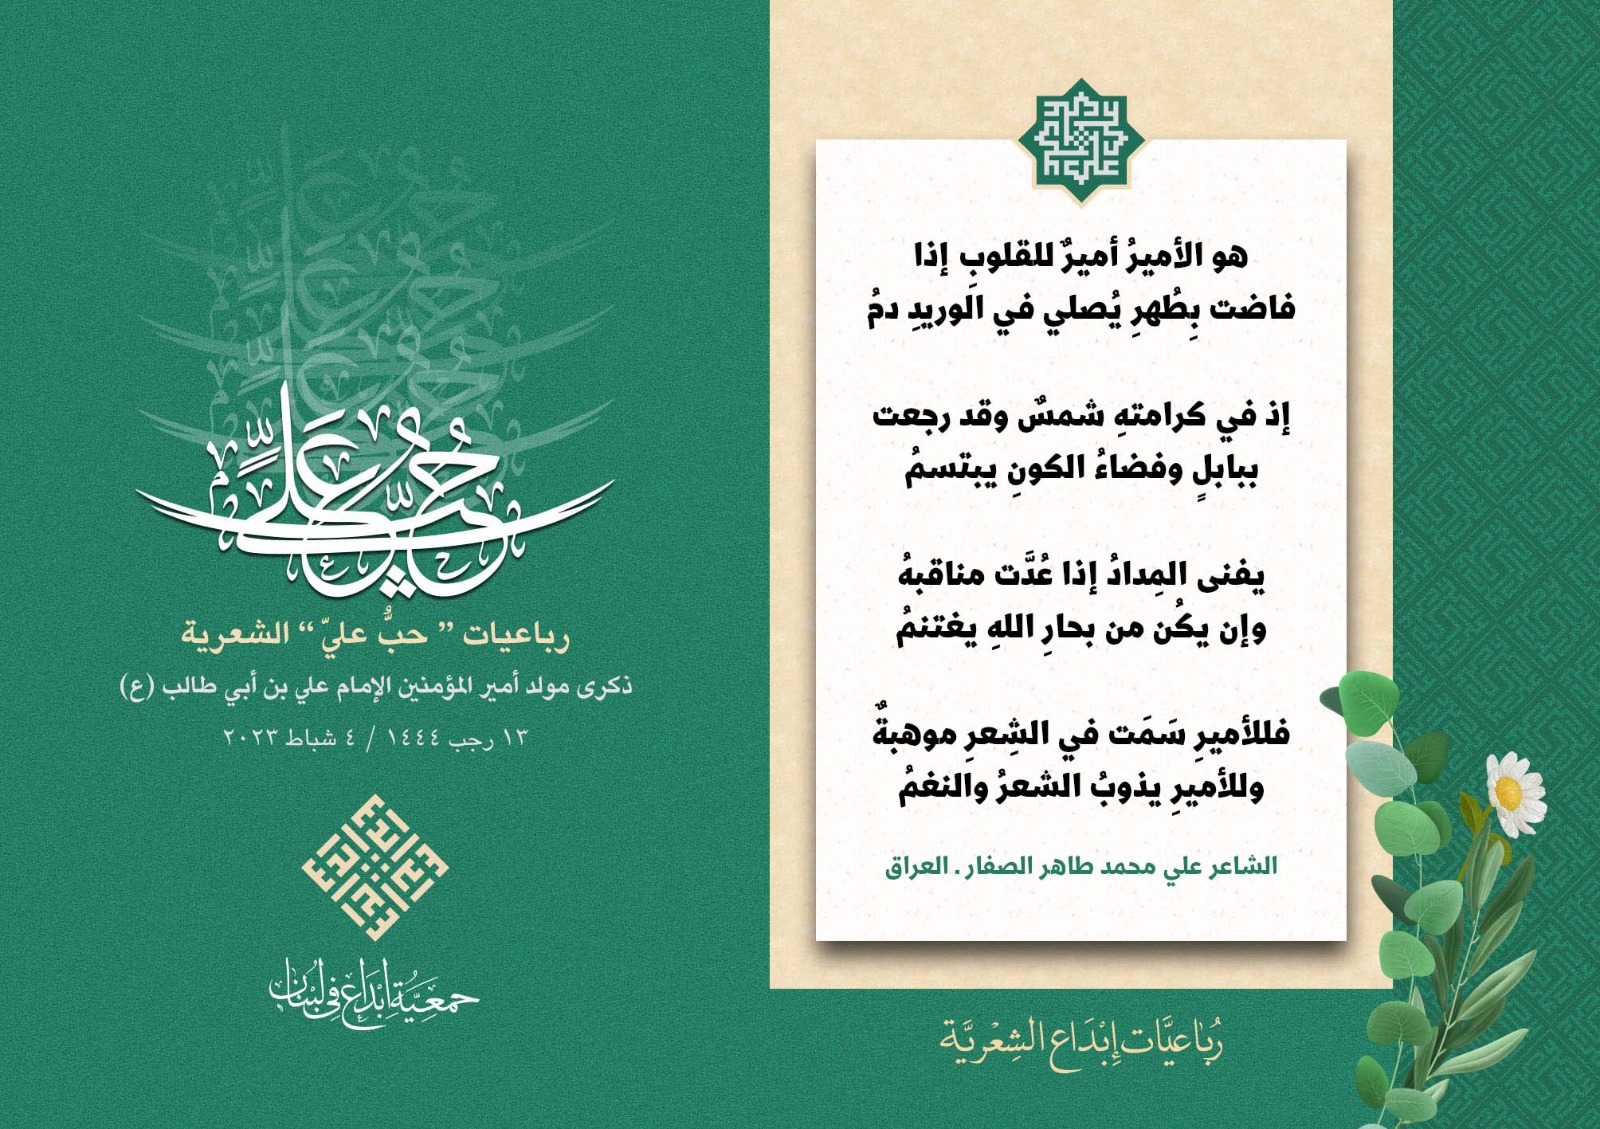 هو الأميرُ أميرٌ للقلوبِ إذا
فاضت بِطُهرِ يُصلي في الوريدِ دمُ
إذ في كرامتهِ شمسٌ وقد رجعت
ببابلٍ وفضاءُ الكونِ يبتسمُ
يفنى المِدادُ إذا عُدَّت مناقبهُ
وإن يكُن من بحارِ اللهِ يغتنمُ
فللأميرِ سَمَت في الشِعرِ موهبةٌ
وللأميرِ يذوبُ الشعرُ والنغمُ
الشاعر علي محمد طاهر الصفار . العراق
رُبَاعيَّات إِبْدَاع الشِعْريَّة
حُبُّ عَلِيٍّ
رباعيات " حبُّ عليّ " الشعرية
ذكرى مولد أمير المؤمنين الإمام علي بن أبي طالب (ع)
١٣ رجب ١٤٤٤ / ٤ شباط ٢٠٢٣
جمعيَّة إبْدَاع في لبْنان